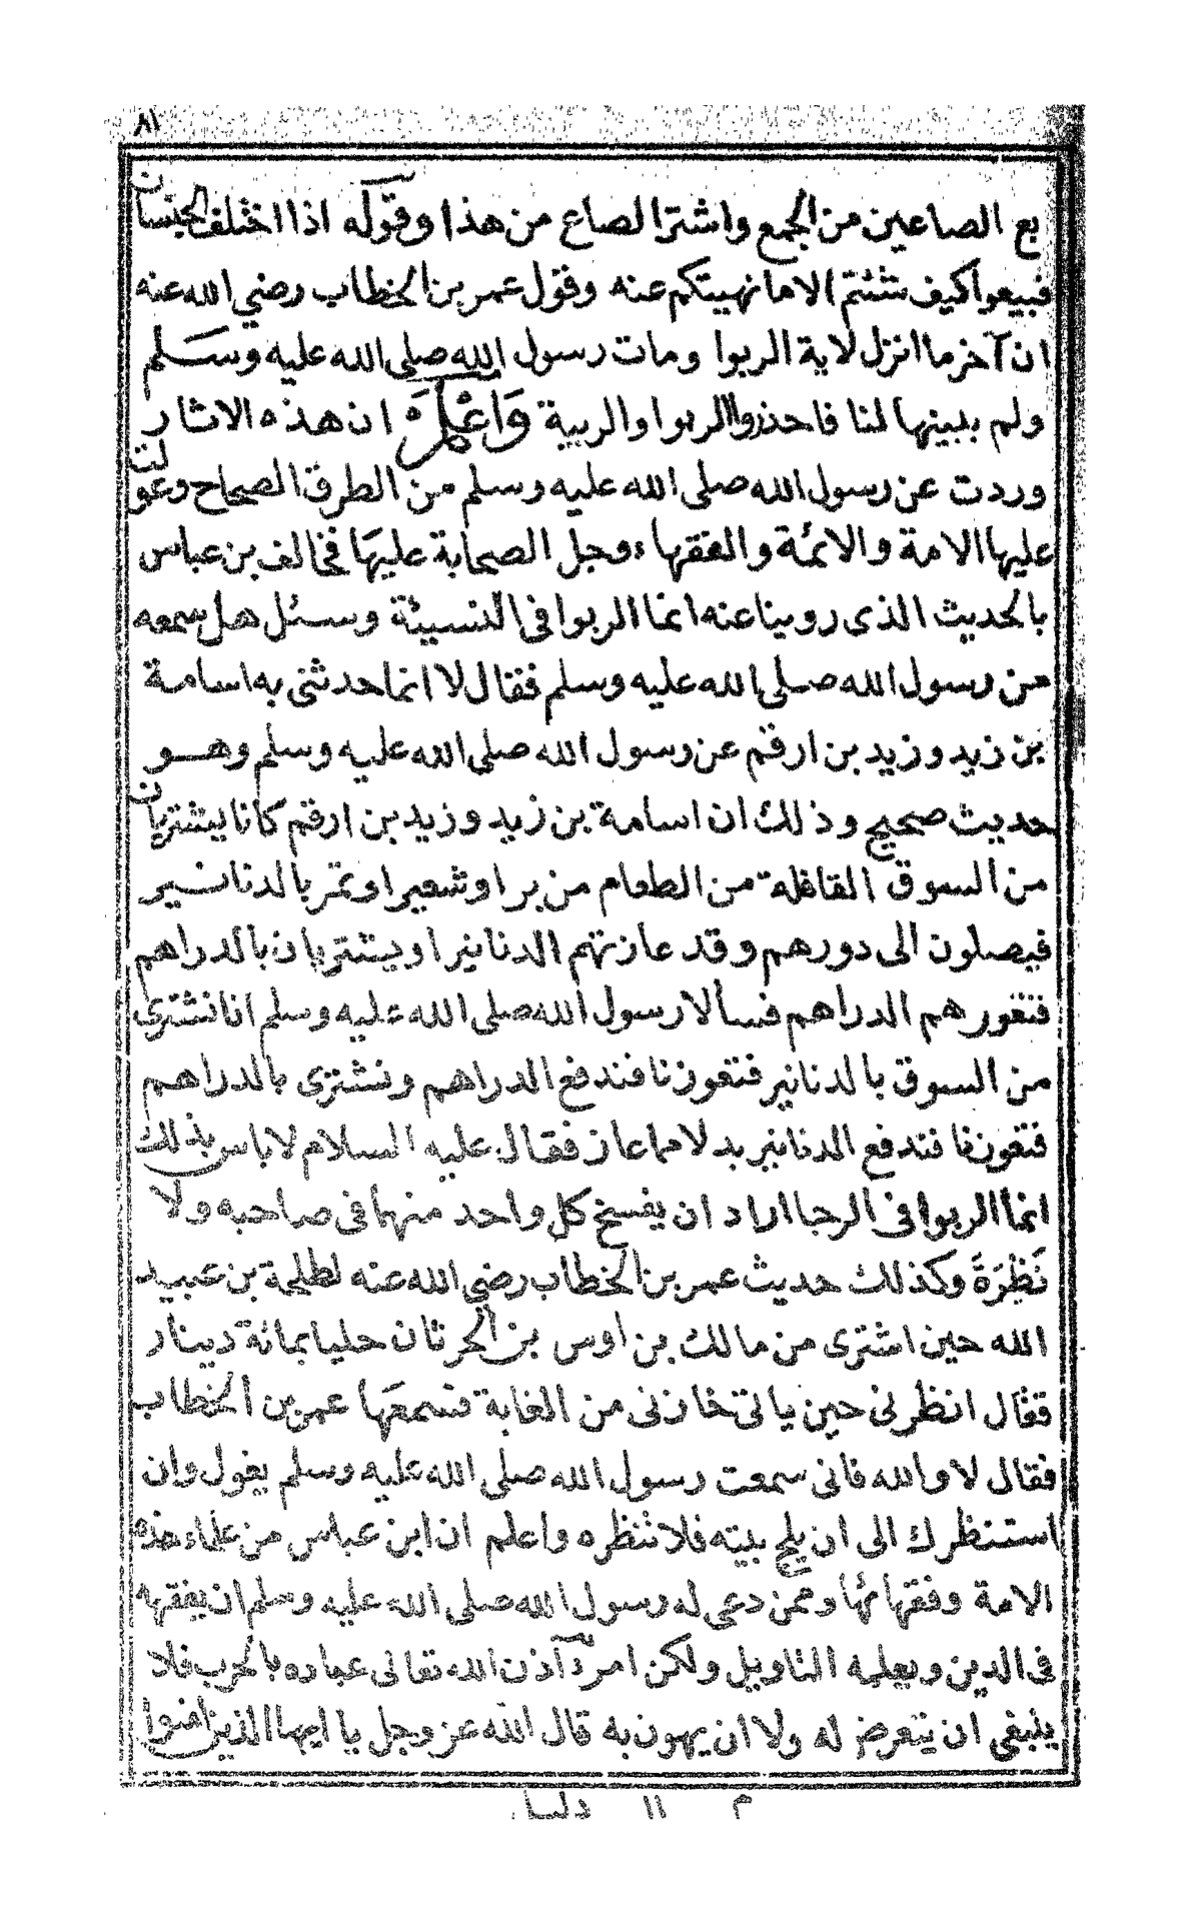 ٨١
بع الصاعين من الجمع واشترا لصاع من هذا وقوله اذا اختلف الجنسان
فبيعوا كيف شئتم الا ما نهيتكم عنه وقول عمر بن الخطاب رضي الله عنه
ان آخر ما انزل لاية الربوا ومات رسول الله صلى الله عليه وسلم
ولم يبينها لنا فاحذروا الربوا والريبة واعلم ان هذه الاثار
وردت عن رسول الله صلى الله عليه وسلم من الطرق الصحاح وعولت
عليها الامة والائمة والفقهاء وجل الصحابة عليها فخالف بن عباس
بالحديث الذى روينا عنه انما الربوا فى النسيئة وسئل هل سمعه
من رسول الله صلى الله عليه وسلم فقال لا انما حدثنى به اسامة
بن زيد وزيد بن ارقم عن رسول الله صلى الله عليه وسلم وهو
حديث صحيح وذلك ان اسامة بن زيد وزيد بن ارقم كانا يشتريان
من السوق القافلة من الطعام من برا وشعيرا وتمر بالدنانير
فيصلون الى دورهم وقد عازتهم الدنانير او يشتريان بالدراهم
فتعورهم الدراهم فسألا رسول الله صلى الله عليه وسلم انا نشترى
من السوق بالدنانير فتعوزنا فندفع الدراهم ونشترى بالدراهم
فتعوزنا فندفع الدنانير بدلا مما عاز فقال عليه السلام لا باس بذلك
انما الربوا فى الرجا اراد ان يفسخ كل واحد منهما فى صاحبه ولا
نظرة وكذلك حديث عمر بن الخطاب رضي الله عنه لطلحة بن عبيد
الله حين اشترى من مالك بن اوس بن الحرثان حليا بمائة دينار
فقال انظرنى حين ياتى خازنى من الغابة فسمعها عمر بن الخطاب
فقال لا والله فانى سمعت رسول الله صلى الله عليه وسلم يقول وان
استنظرك الى ان يلج بيته فلا تنظره واعلم ان ابن عباس من علماء هذه
الامة وفقهائها وممن دعى له رسول الله صلى الله عليه وسلم ان يفقهه
فى الدين ويعلمه التاويل ولكن امر آذن الله تعالى عباده بالحرب فلا
ينبغى ان يتعرض له ولا ان يهون به قال الله عز وجل يا ايها الذين امنوا
م ١١ دليل